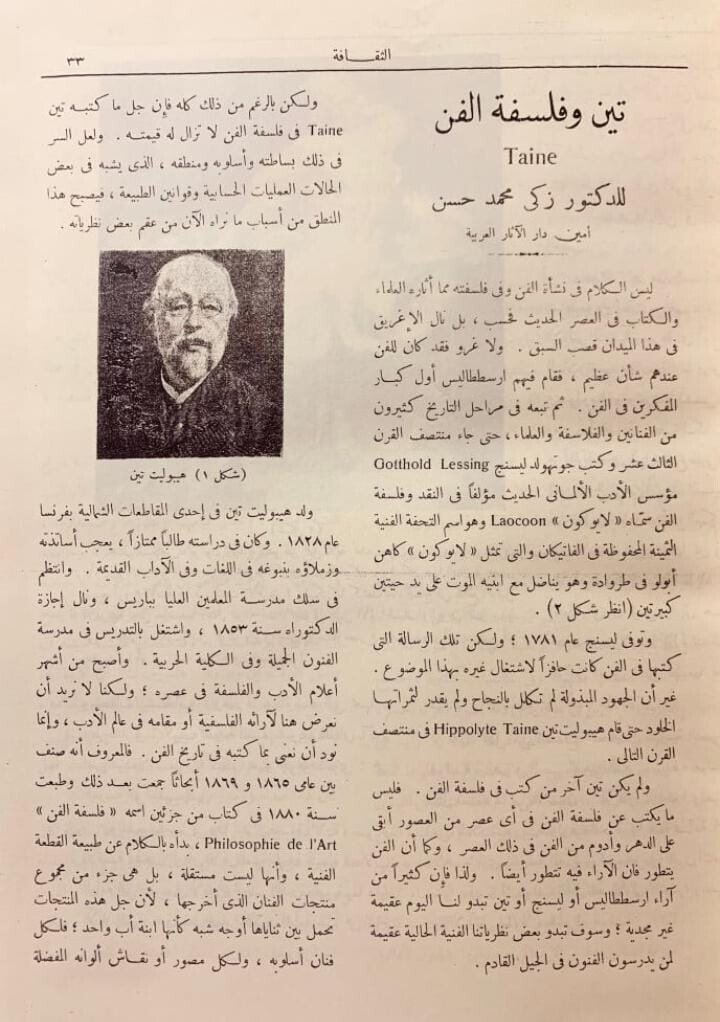 الثقافة
٣٣
تين وفلسفة الفن
Taine
للدكتور زكى محمد حسن
أمين دار الآثار العربية
ليس الكلام فى نشأة الفن وفى فلسفته مما أثاره العلماء
والكتاب فى العصر الحديث فحسب ، بل نال الإغريق
فى هذا الميدان قصب السبق . ولا غرو فقد كان للفن
عندهم شأن عظيم ، فقام فيهم ارسططاليس أول كبار
المفكرين فى الفن . ثم تبعه فى مراحل التاريخ كثيرون
من الفنانين والفلاسفة والعلماء، حتى جاء منتصف القرن
الثالث عشر وكتب جوتهولد ليسنج Gotthold Lessing
مؤسس الأدب الألمانى الحديث مؤلفاً فى النقد وفلسفة
الفن سمّاه « لايوكون » Laocoon وهو اسم التحفة الفنية
الثمينة المحفوظة فى الفاتيكان والتى تمثل « لايوكون » كاهن
أبولو فى طروادة وهو يناضل مع ابنيه الموت على يد حيتين
كبيرتين (انظر شكل ٢) .
وتوفى ليسنج عام ١٧٨١ ؛ ولكن تلك الرسالة التى
كتبها فى الفن كانت حافزاً لاشتغال غيره بهذا الموضوع .
غير أن الجهود المبذولة لم تكلل بالنجاح ولم يقدر لثمراتها
الخلود حتى قام هيبوليت تين Hippolyte Taine فى منتصف
القرن التالى .
ولم يكن تين آخر من كتب فى فلسفة الفن . فليس
ما يكتب عن فلسفة الفن فى أى عصر من العصور أبقى
على الدهر وأدوم من الفن فى ذلك العصر ، وكما أن الفن
يتطور فان الآراء فيه تتطور أيضاً . ولذا فإن كثيراً من
آراء ارسططاليس أو ليسنج أو تين تبدو لنا اليوم عقيمة
غير مجدية ؛ وسوف تبدو بعض نظرياتنا الفنية الحالية عقيمة
لمن يدرسون الفنون فى الجيل القادم .
ولكن بالرغم من ذلك كله فإن جل ما كتبه تين
Taine فى فلسفة الفن لا تزال له قيمته . ولعل السر
فى ذلك بساطته وأسلوبه ومنطقه ، الذى يشبه فى بعض
الحالات العمليات الحسابية وقوانين الطبيعة ، فيصبح هذا
المنطق من أسباب ما نراه الآن من عقم بعض نظرياته .
(شكل ١) هيبوليت تين
ولد هيبوليت تين فى إحدى المقاطعات الشمالية بفرنسا
عام ١٨٢٨ . وكان فى دراسته طالباً ممتازاً ، يعجب أساتذته
وزملاؤه بنبوغه فى اللغات وفى الآداب القديمة . وانتظم
فى سلك مدرسة المعلمين العليا بباريس ، ونال إجازة
الدكتوراه سنة ١٨٥٣ ، واشتغل بالتدريس فى مدرسة
الفنون الجميلة وفى الكلية الحربية . وأصبح من أشهر
أعلام الأدب والفلسفة فى عصره ؛ ولكنا لا نريد أن
نعرض هنا لآرائه الفلسفية أو مقامه فى عالم الأدب ، وإنما
نود أن نعنى بما كتبه فى تاريخ الفن . فالمعروف أنه صنف
بين عامى ١٨٦٥ و ١٨٦٩ أبحاثاً جمعت بعد ذلك وطبعت
سنة ١٨٨٠ فى كتاب من جزئين اسمه « فلسفة الفن »
Philosophie de l'Art ، بدأه بالكلام عن طبيعة القطعة
الفنية ، وأنها ليست مستقلة ، بل هى جزء من مجموع
منتجات الفنان الذى أخرجها ، لأن جل هذه المنتجات
تحمل بين ثناياها أوجه شبه كأنها ابنة أب واحد ؛ فلكل
فنان أسلوبه ، ولكل مصور أو نقاش ألوانه المفضلة